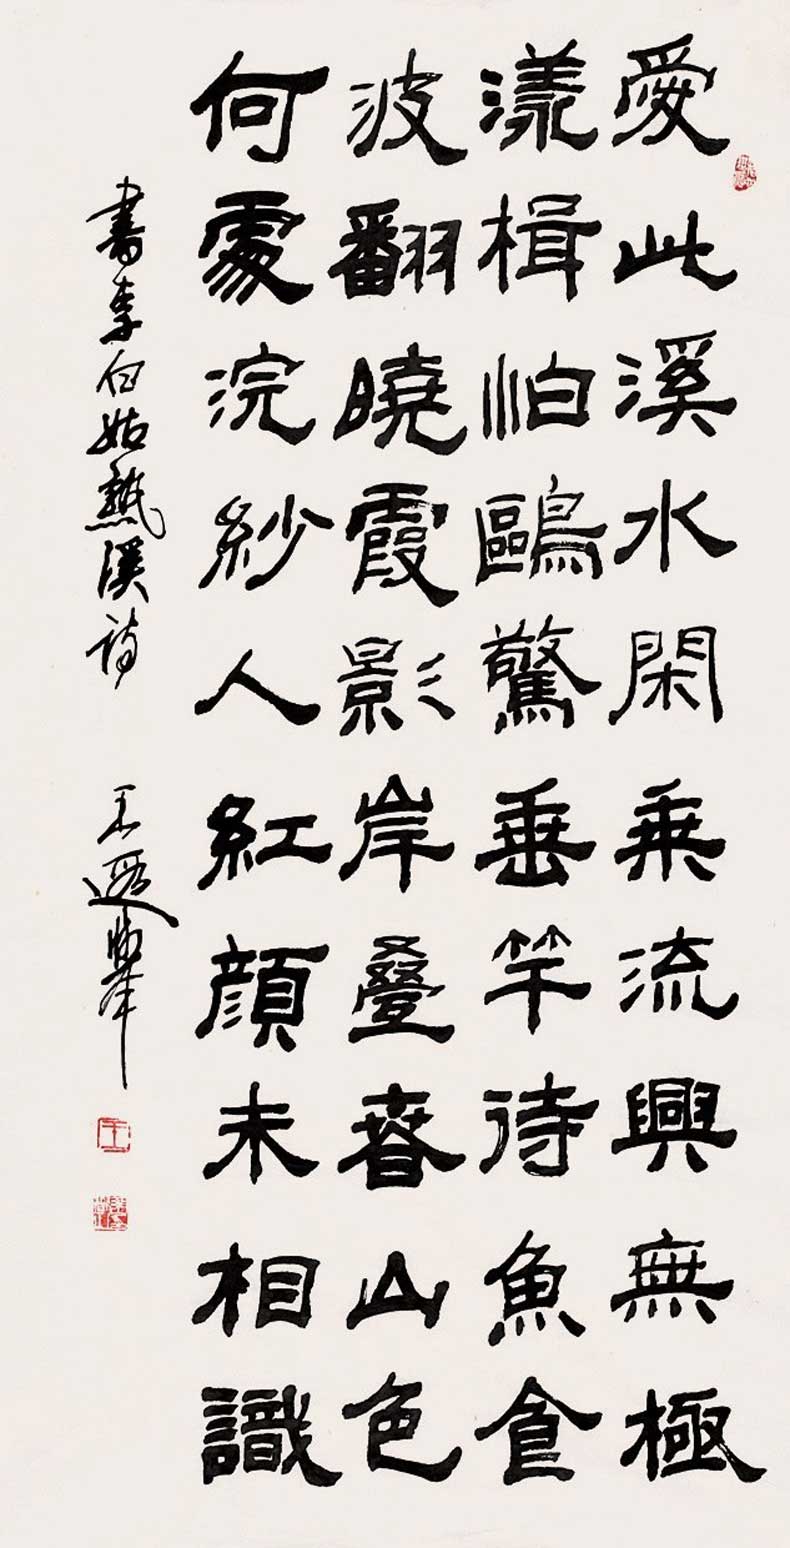 愛此溪水閑乘流興無極
漾楫怕鷗驚垂竿待魚食
波翻曉霞影岸疊春山色
何處浣紗人紅顏未相識
書李白姑熟溪詩
王遐舉